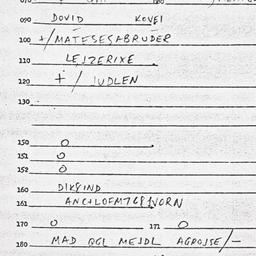 090 DOVID KOVEI
100 +/MATESESABRUDER
110 LEJZERIXE
120 +/ JUDLEN
130
150 O
151 O
152 O
160 DIK8IND
161
170 O 171 O
180 MAD QGL MEJDL AGROJSE/-